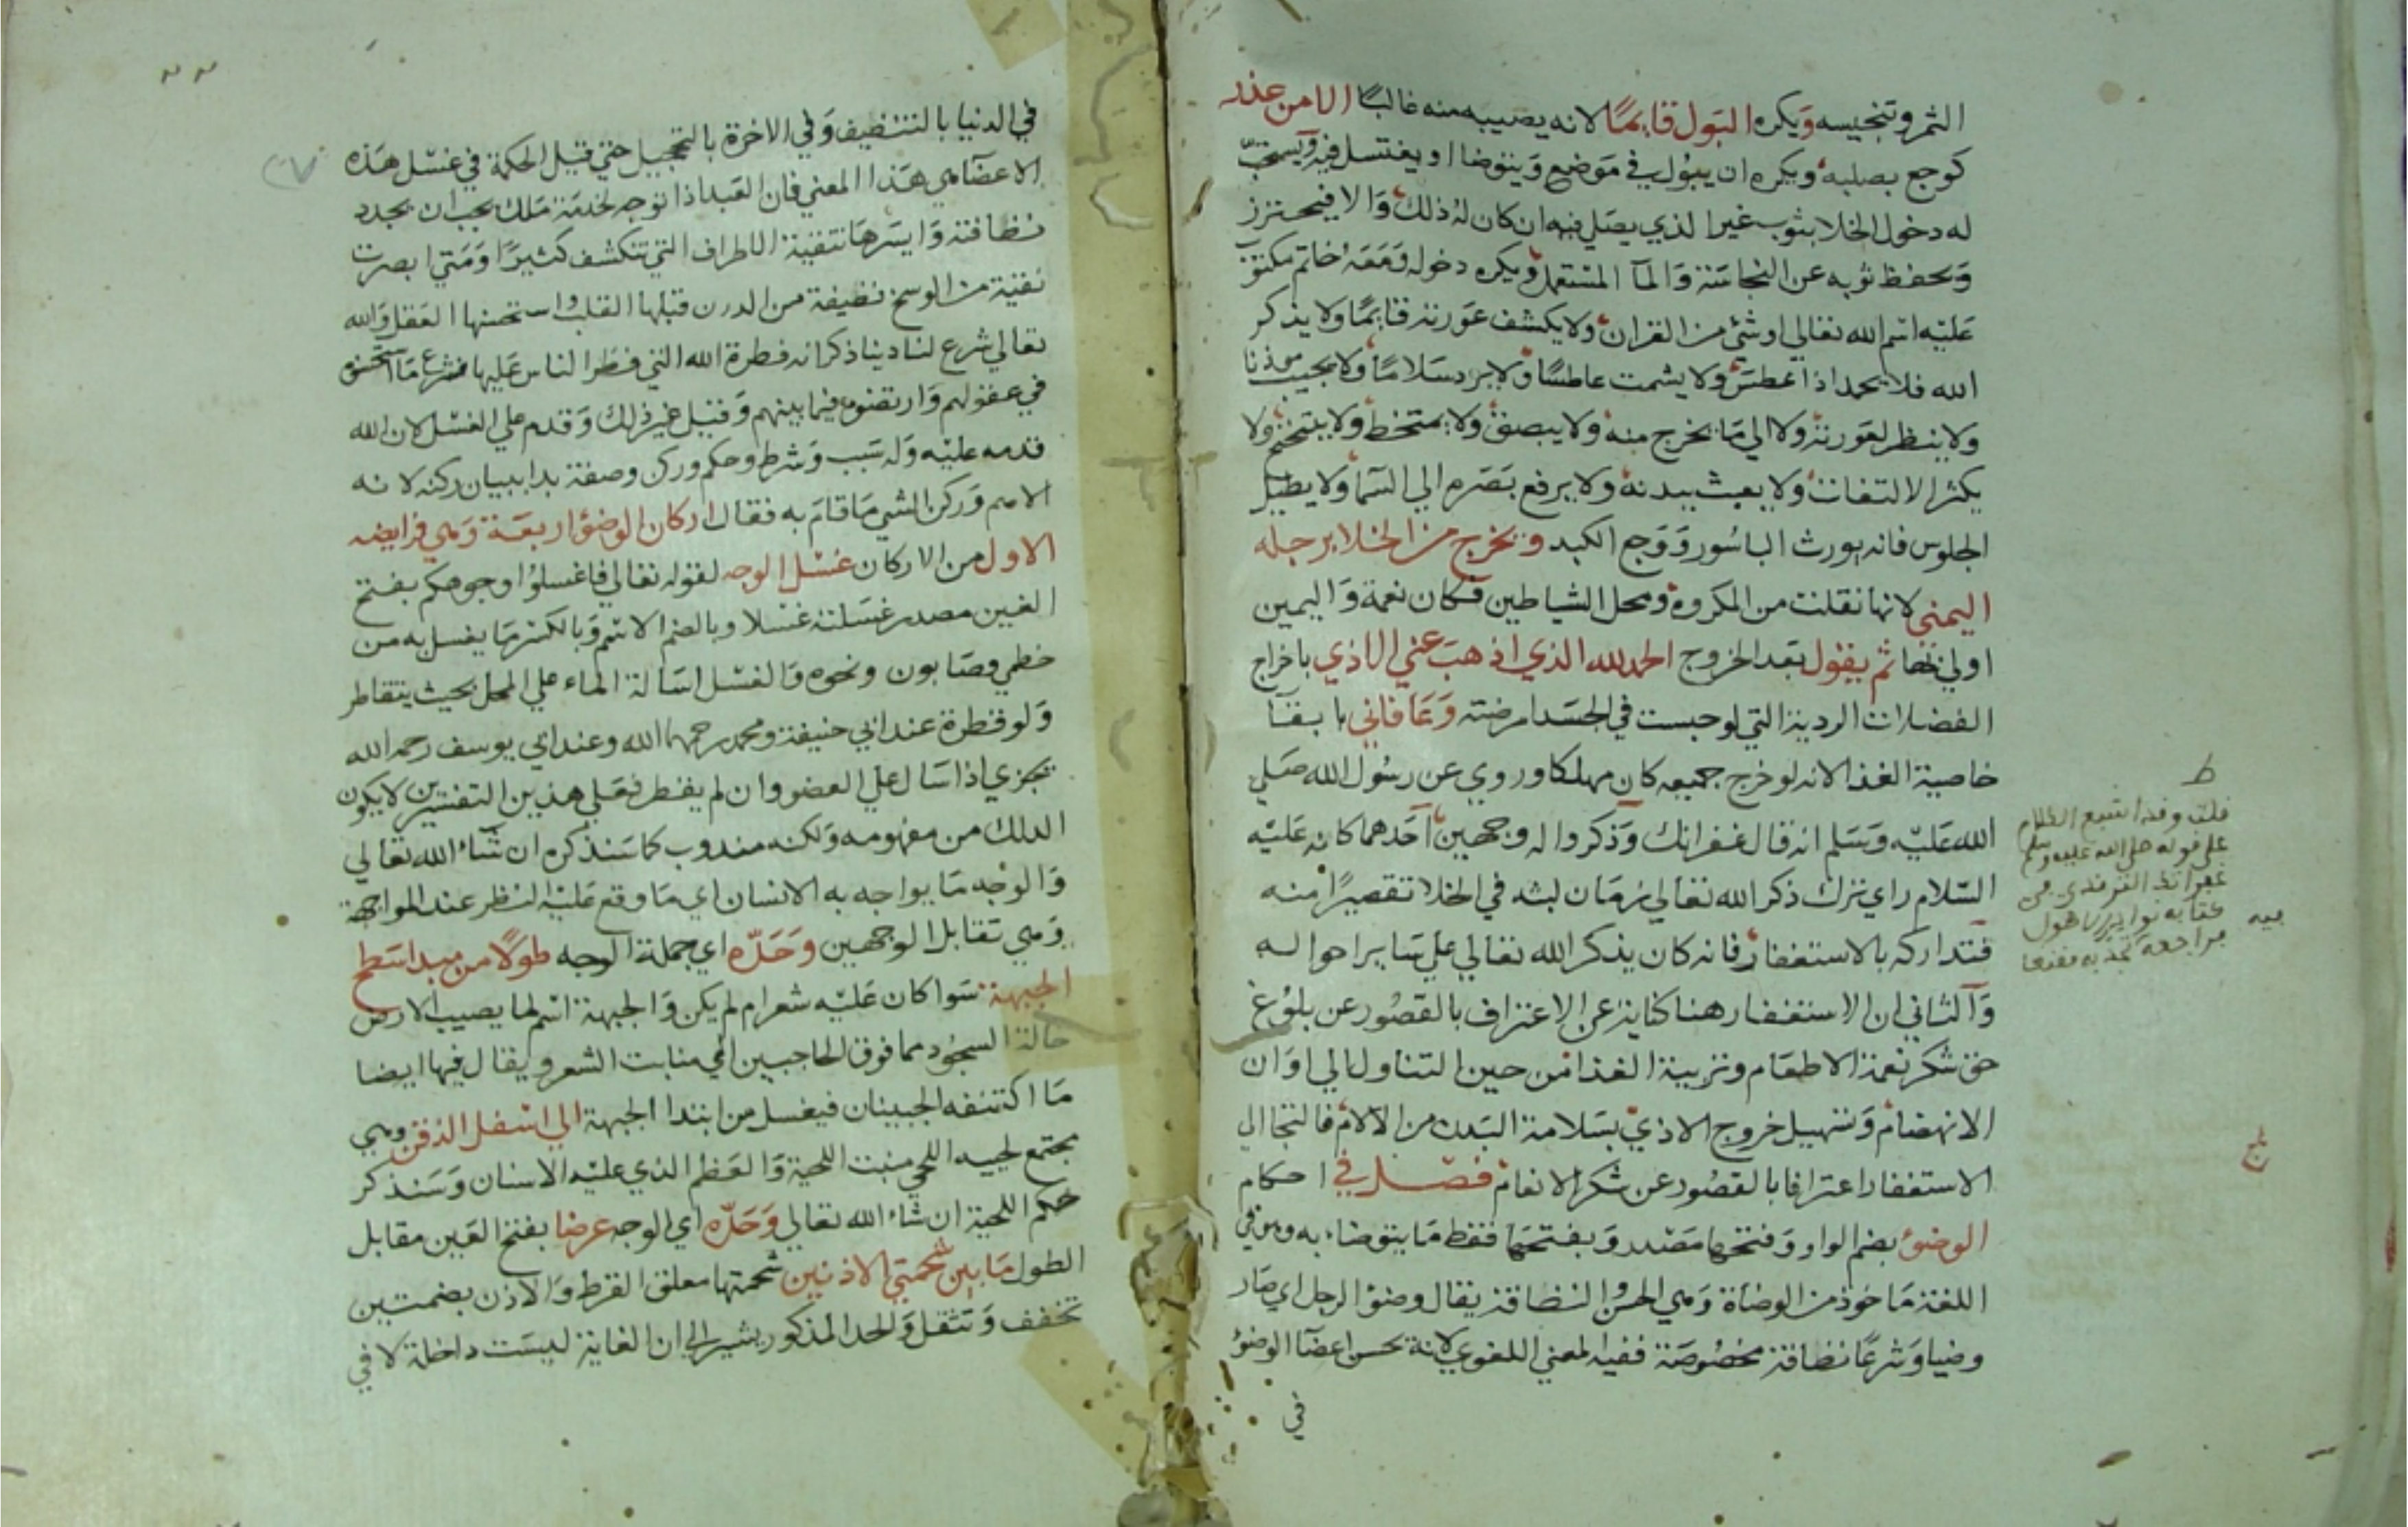 الثمر وتنجيسه ويكره البول قايمًا لانه يصيبه منه غالبًا الا من عذر
كوجع بصلبه ويكره ان يبول في موضع ويتوضا او يغتسل فيه ويستحب
له دخول الخلا بثوب غير الذي يصلي فيه ان كان له ذلك والا فيحترز
ويحفظ ثوبه عن النجاسة والمآ المستعمل ويكره دخوله ومعه خاتم مكتوب
عليه اسم الله تعالي او شئ من القران ولا يكشف عورته قايمًا ولا يذكر
الله فلا يحمد اذا عطس ولا يشمت عاطسًا ولا يرد سلامًا ولا يجيب موذنا
ولا ينظر لعورته ولا الي ما يخرج منه ولا يبصق ولا يمتخط ولا يتنحنح ولا
يكثر الالتفات ولا يعبث ببدنه ولا يرفع بصره الي السمآ ولا يطيل
الجلوس فانه يورث الباسور ووجع الكبد ويخرج من الخلا برجله
اليمني لانها نقلت من المكروه ومحل الشياطين فكان نعمة واليمين
اولي بها ثم يقول بعد الخروج الحمد لله الذي اذهب عني الاذي باخراج
الفضلات الردية التي لو حبست في الجسد امرضته وعافاني بابقآ
خاصية الغذا لانه لو خرج جميعه كان مهلكا وروي عن رسول الله صلي
الله عليه وسلم انه قال غفرانك وذكروا له وجهين احدهما كانه عليه
السلام راي ترك ذكر الله تعالي زمان لبثه في الخلا تقصيرًا منه
فتداركه بالاستغفار فانه كان يذكر الله تعالي علي ساير احواله
والثاني ان الاستغفار هنا كناية عن الاعتراف بالقصور عن بلوغ
حق شكر نعمة الاطعام وتربية الغذا من حين التناول الي اوان
الانهضام وتسهيل خروج الاذي بسلامة البدن من الآلام فالتجا الي
الاستغفار اعترافا بالقصور عن شكر الانعام فصل في احكام
الوضوء بضم الواو وفتحها مصدر وبفتحها فقط ما يتوضاء به وهو في
اللغة ماخوذ من الوضاة وهي الحسن والنظافة يقال وضؤ الرجل اي صار
وضيا وشرعًا نظافة مخصوصة ففيه المعني اللغوي لانه يحسن اعضآ الوضؤ
في
ط
على قوله صلى الله عليه وسلم
في الدنيا بالتنظيف وفي الاخرة بالتحجيل حتي قيل الحكمة في غسل هذه
الاعضآ هي هذا المعني فان العبد اذا توجه لخدمة ملك يجب ان يجدد
نظافته وايسرها تنقية الاطراف التي تنكشف كثيرًا ومتي ابصرت
نقية من الوسخ نظيفة من الدرن قبلها القلب واستحسنها العقل والله
تعالي شرع لنا دينا ذكر انه فطرة الله التي فطر الناس عليها فشرع ما استحسنوه
في عقولهم وارتضوه فيما بينهم وقيل غير ذلك وقدم علي الغسل لان الله
قدمه عليه وله سبب وشرط وحكم وركن وصفة بدا ببيان ركنه لانه
الاهم وركن الشي ما قام به فقال اركان الوضؤ اربعة وهي فرايضه
الاول من الاركان غسل الوجه لقوله تعالي فاغسلوا وجوهكم بفتح
الغين مصدر غسلته غسلا وبالضم الاسم وبالكسر ما يغسل به من
خطمي وصابون ونحوه والغسل اسالة الماء علي المحل بحيث يتقاطر
ولو قطرة عند ابي حنيفة ومحمد رحمهما الله وعند ابي يوسف رحمه الله
يجزي اذا سال علي العضو وان لم يقطر فعلي هذين التفسيرين لا يكون
الدلك من مفهومه ولكنه مندوب كما سنذكره ان شآء الله تعالي
والوجه ما يواجه به الانسان اي ما وقع عليه النظر عند المواجهة
وهي تقابل الوجهين وحده اي جملة الوجه طولًا من مبدا سطح
الجبهة سوا كان عليه شعر ام لم يكن والجبهة اسم لما يصيب الارض
حالة السجود مما فوق الحاجبين الي منابت الشعر ويقال فيها ايضا
ما اكتنفه الجبينان فيغسل من ابتدا الجبهة الي اسفل الذقن وهي
مجتمع لحييه اللحي منبت اللحية والعظم الذي عليه الاسنان وسنذكر
حكم اللحية ان شاء الله تعالي وحده اي الوجه عرضا بفتح العين مقابل
الطول ما بين شحمتي الاذنين شحمتها معلق القرط والاذن بضمتين
تخفف وتثقل والحد المذكور يشير الي ان الغاية ليست داخلة لا في